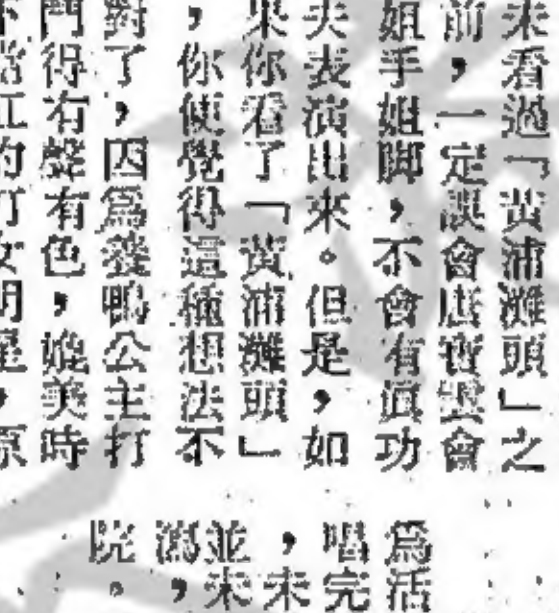 未看過「黃浦灘頭」之
前,一定誤會唐寶雲會
姐手姐脚,不會有眞功
夫表演出來。但是,如
果你看了「黃浦灘頭」
,你便覺得這種想法不
對了,因爲養鴨公主打
鬥得有聲有色,媲美時
紅的打女明星,原
爲活
唱完
,未
並未
,
院。